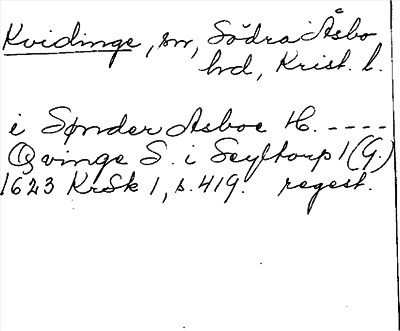 Kvidinge, sn, Södra Åsbo
hd, Krist. l.
i Sønder Asboe H. ----
Qvinge S. i Seyltorp 1 (G.)
1623 KrSk 1, s. 419. regest.